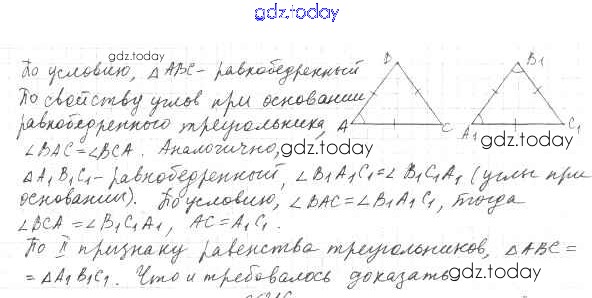 gdz.today
gdz.today
По условию, △ABC - равнобедренный
По свойству углов при основании
равнобедренного треугольника,
∠BAC=∠BCA. Аналогично,
△A1B1C1 - равнобедренный, ∠B1A1C1=∠B1C1A1 (углы при
основании). По условию, ∠BAC=∠B1A1C1, тогда
∠BCA=∠B1C1A1, AC=A1C1.
По II признаку равенства треугольников, △ABC=
=△A1B1C1. Что и требовалось доказать.
B
A
C
B1
A1
C1
gdz.today
gdz.today
gdz.today
gdz.today